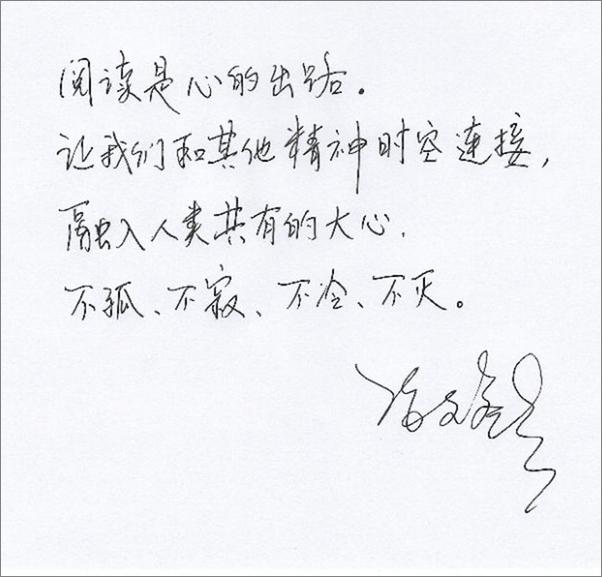 阅读是心的出路。
让我们和其他精神时空连接，
融入人类共有的大心，
不孤、不寂、不冷、不灭。